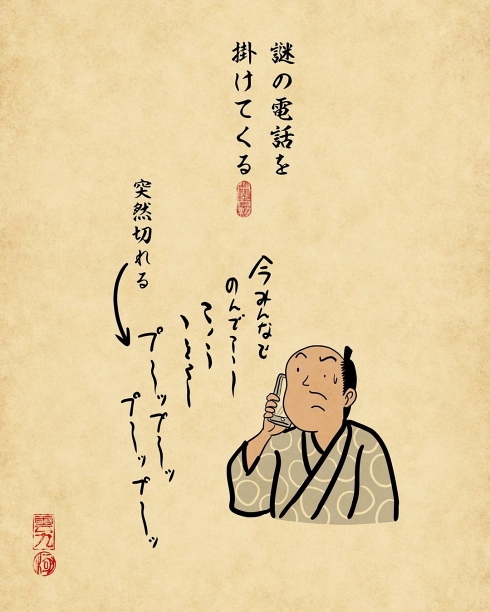 謎の電話を
掛けてくる
今みんなで
のんで
突然切れる
プーップーッ
プーップーッ